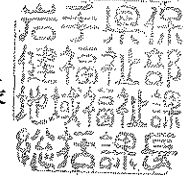 岩手県保
健福祉部
地域福祉課
総括課長